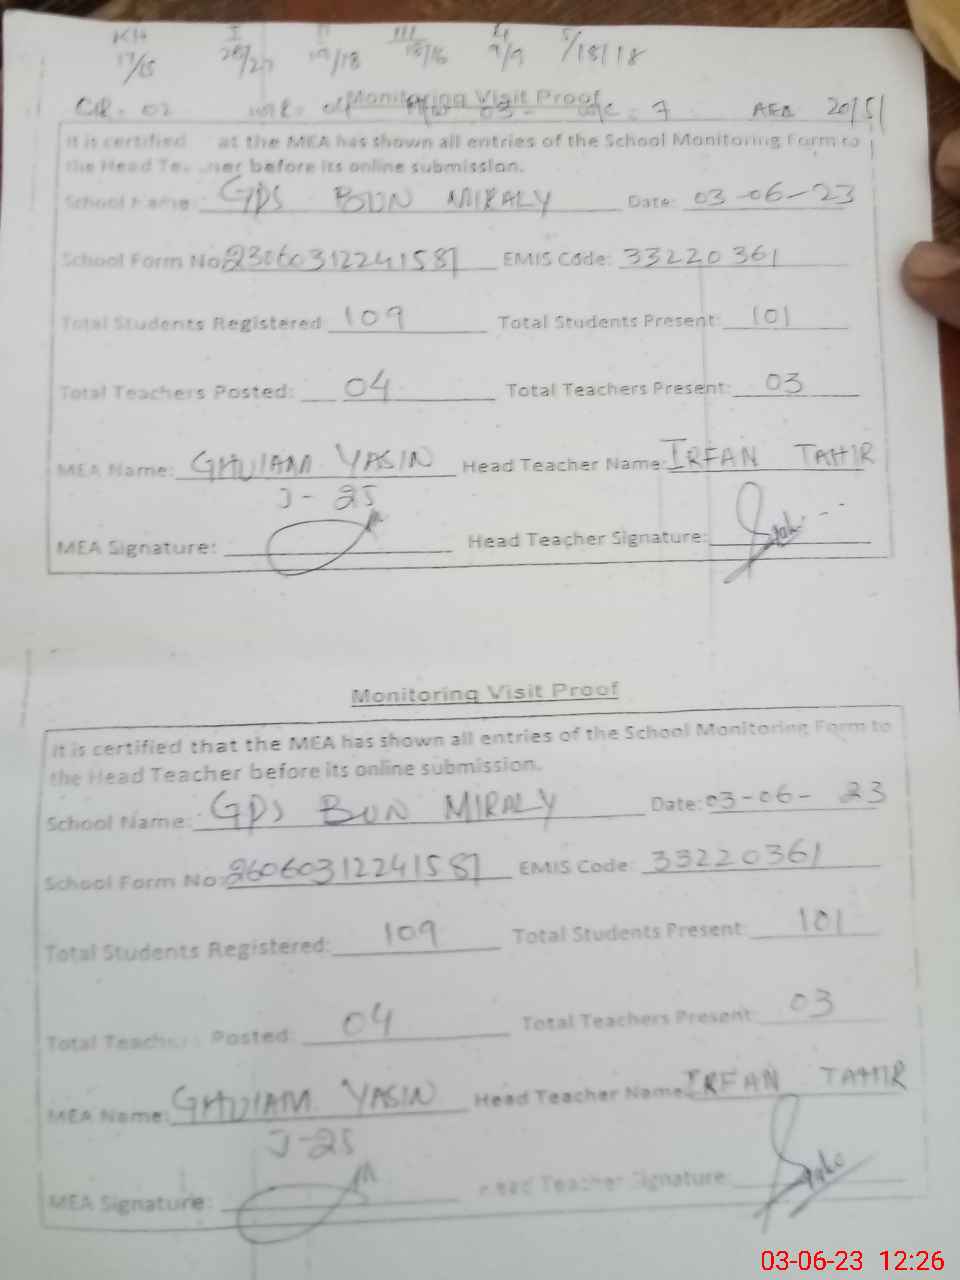 KH I II III 4 5
17/15 20/20 19/18 18/16 9/9 18/18
CR = 02 = 03 = 7 20/5/
Monitoring Visit Proof
It is certified at the MEA has shown all entries of the School Monitoring Form to
the Head before its online submission.
School Name: GPS BUN MIRALY Date: 03-06-23
School Form No: 23060312241587 EMIS Code: 33220361
Total Students Registered 109 Total Students Present: 101
Total Teachers Posted: 04 Total Teachers Present: 03
MEA Name: GHULAM YASIN Head Teacher Name: IRFAN TAHIR
J-25
MEA Signature: Head Teacher Signature:
Monitoring Visit Proof
It is certified that the MEA has shown all entries of the School Monitoring Form to
the Head Teacher before its online submission.
School Name: GPS BUN MIRALY Date: 03-06-23
School Form No: 26060312241587 EMIS Code: 33220361
Total Students Registered: 109 Total Students Present: 101
Total Posted: 04 Total Teachers Present: 03
MEA Name: GHULAM YASIN Head Teacher Name: IRFAN TAHIR
J-25
MEA Signature: Head Teacher Signature:
03-06-23 12:26